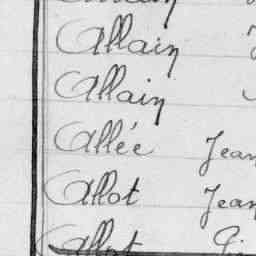 Allain
Allain
Allée Jean
Allot Jean
Allot Pi